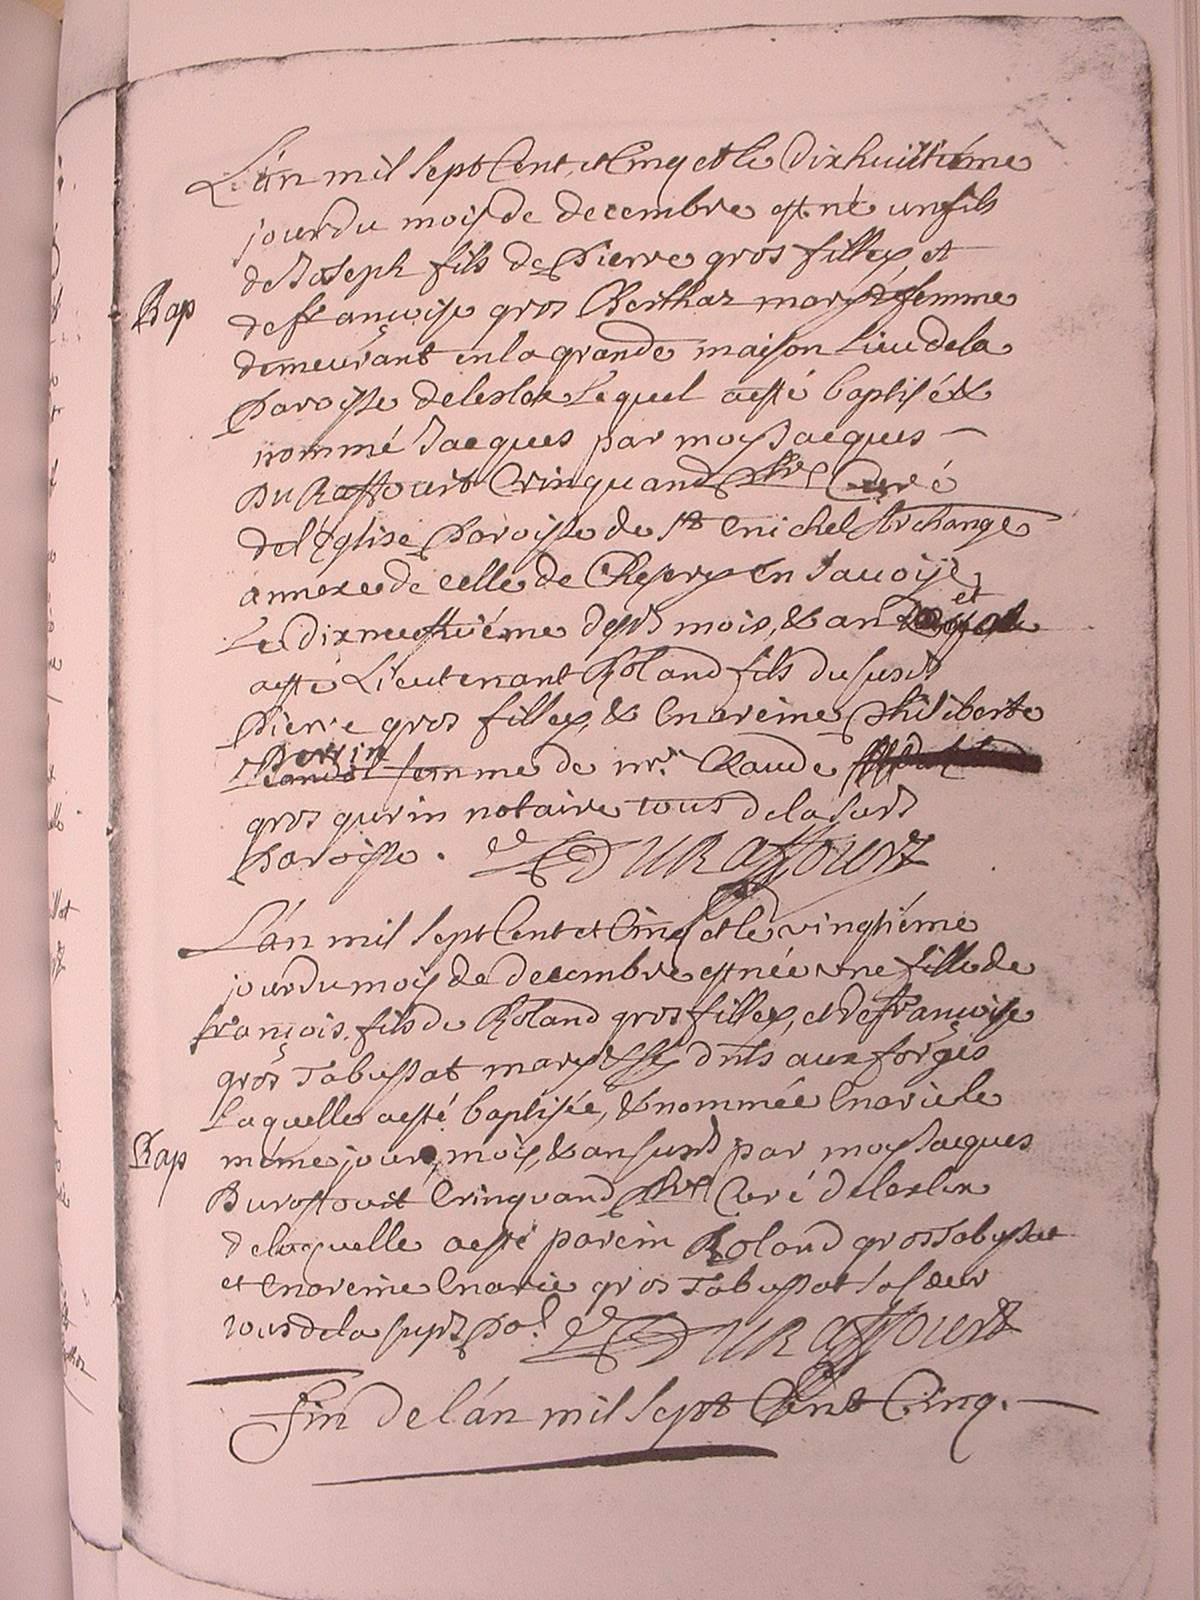 L'án mil sept Cent, et Cinq et le dixhuittiéme
jour du mois de decembre est né un fils
de Joseph fils de Pierre gros fillex et
Bap
de françoise gros Berthaz maryez femme
demeurant en la grande maison Lieu de la
Paroisse de Leslex Lequel a esté baptisé &
nommé Jacques par moy Jacques
Duraffourt Crinquand Curé
de l'Eglise Paroisse de St Michel Archange
annexe de celle de Chesery en Savoije
Le dixneufviéme desd mois, & an et
a esté Lieutenant Roland fils du susd
Pierre gros fillex, & Mareine Philiberte
Perrin femme de mr. Claude
gros gurin notaire tous de la susd
Paroisse. DURaffourt
L'án mil sept Cent et Cinq et le vingtiéme
jour du mois de decembre est née une fille de
françois fils de Roland gros fillex, et de françoise
gros Tabussat maryez aux forges
Laquelle a esté baptisée, & nommée Marie le
Bap
méme jour, mois, & an susd par moy Jacques
Duraffourt Crinquand Curé de Leslex
de laquelle a esté parein Roland gros Tabussat
et Mareine Marie gros Tabussat sa soeur
tous de la susd Pa. DURaffourt
fin de l'án mil sept Cent Cinq.